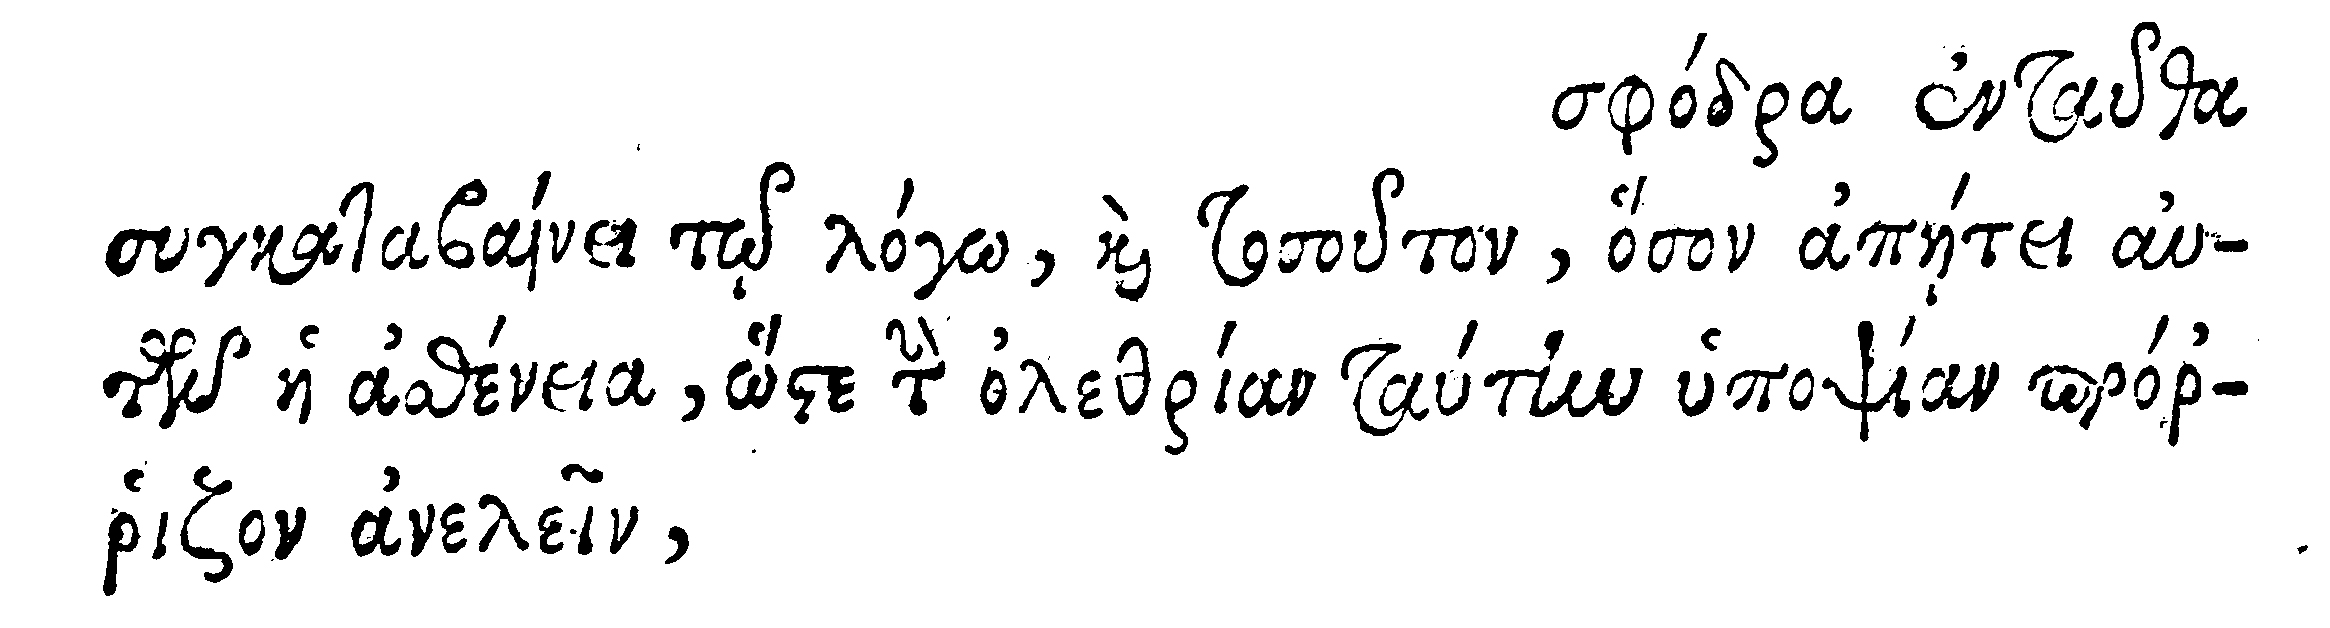 σφόδρα ἐνταῦθα
συγκαταβαίνει τῷ λόγῳ, καὶ τοσοῦτον, ὅσον ἀπῄτει αὐ-
τῶν ἡ ἀσθένεια, ὥστε τὴν ὀλεθρίαν ταύτην ὑποψίαν πρόῤ-
ῥιζον ἀνελεῖν,